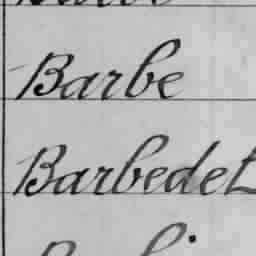 Barbe
Barbedet